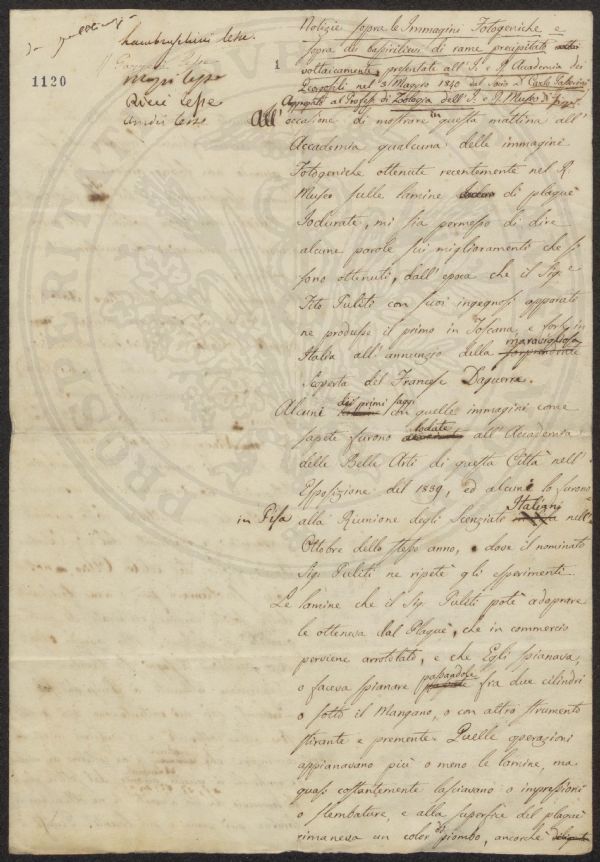 Lambruschini lesse.
Ridolfi lesse
1120
1
Notizie sopra le Immagini Fotogeniche e
sopra dei bassirilievi di rame precipitato
voltaicamente, presentate all' I. e R. Accademia dei
Georgofili nel 3 Maggio 1840 dal Socio D. Carlo Passerini
Aggregato al Profess. di Zoologia dell' I. e R. Museo di
All' occasione di mostrare in questa mattina all'
Accademia qualcuna delle immagini
Fotogeniche ottenute recentemente nel R.
Museo sulle lamine di plaquè
Iodurate, mi sia permesso di dire
alcune parole sui miglioramenti che si
sono ottenuti, dall' epoca che il Sig.e
Tito Puliti con suoi ingegnosi apparati
ne produsse il primo in Toscana, e forse in
Italia all' annunzio della sorprendente maravigliosa
Scoperta del Francese Daguerre.
Alcuni dei primi saggi con quelle immagini come
sapete furono lodate all' Accademia
delle Belle Arti di questa Città nell'
Esposizione del 1839, ed alcuni lo furono
in Pisa alla Riunione degli Scenziati Italiani nell'
Ottobre dello stesso anno, dove il nominato
Sig. Puliti ne ripetè gli esperimenti.
Le lamine che il Sig. Puliti potè adoprare
le otteneva dal Plaquè, che in commercio
perviene arrotolato, e che Egli spianava,
o faceva spianare passandole fra due cilindri
o sotto il Mangano, o con altro strumento
stirante e premente. Quelle operazioni
appianavano più o meno le lamine, ma
quasi costantemente lasciavano o impressioni
o slembature, e alla superficie del plaquè
rimaneva un color di piombo, ancorchè